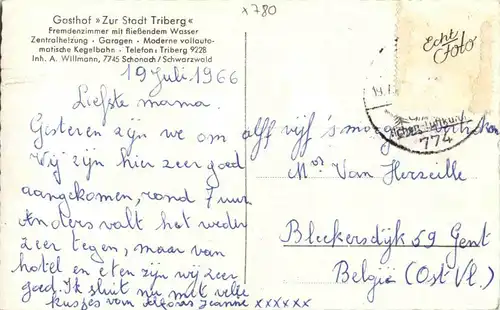 x780
Gasthof »Zur Stadt Triberg«
Fremdenzimmer mit fließendem Wasser
Zentralheizung · Garagen · Moderne vollauto-
matische Kegelbahn · Telefon: Triberg 9228
Inh. A. Willmann, 7745 Schonach / Schwarzwald
Echt
Foto
19 Juli 1966
Liefste mama.
Gesteren zijn we om alff vijf 's morgens vertrokken
Wij zijn hier zeer goed
aangekomen, rond 7 uur
Anders valt het weder
zeer tegen, maar van
hotel en eten zijn wij zeer
goed. Ik sluit nu met vele
kusjes van Alfons Jeanne xxxxxx
774
Mr Van Herzeille
Bleekersdijk 59 Gent
België (Ost Vl.)